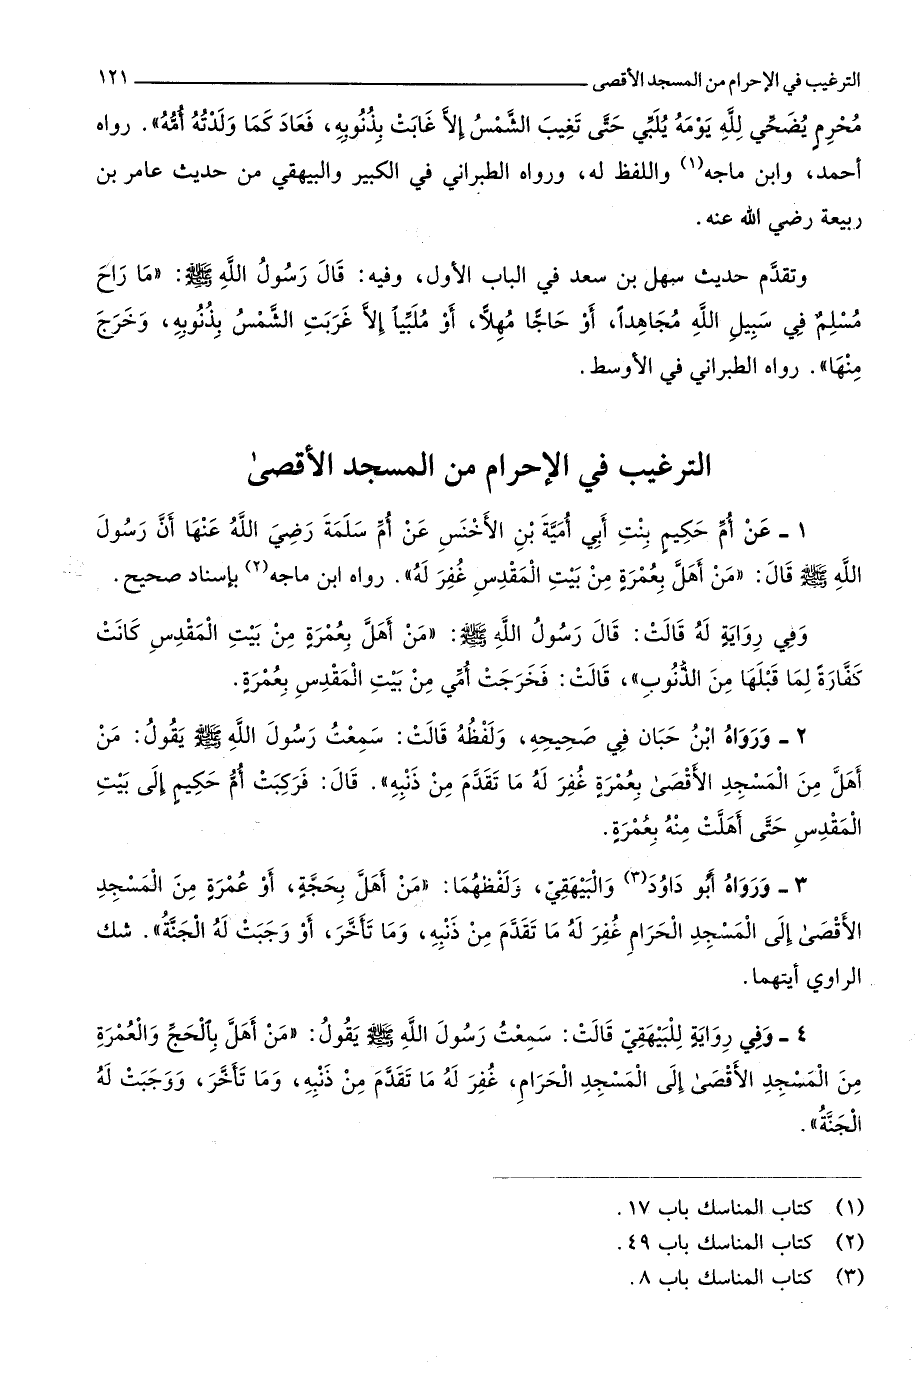 الترغيب في الإحرام من المسجد الأقصى ١٢١
مُحْرِمٍ يُضَحِّي لِلَّهِ يَوْمَهُ يُلَبِّي حَتَّى تَغِيبَ الشَّمْسُ إِلاَّ غَابَتْ بِذُنُوبِهِ، فَعَادَ كَمَا وَلَدَتْهُ أُمُّهُ». رواه
أحمد، وابن ماجه(١) واللفظ له، ورواه الطبراني في الكبير والبيهقي من حديث عامر بن
ربيعة رضي الله عنه.
وتقدَّم حديث سهل بن سعد في الباب الأول، وفيه: قَالَ رَسُولُ اللَّهِ ﷺ: «مَا رَاحَ
مُسْلِمٌ فِي سَبِيلِ اللَّهِ مُجَاهِداً، أَوْ حَاجًّا مُهِلاًّ، أَوْ مُلَبِّياً إِلاَّ غَرَبَتِ الشَّمْسُ بِذُنُوبِهِ، وَخَرَجَ
مِنْهَا». رواه الطبراني في الأوسط.
الترغيب في الإحرام من المسجد الأقصىٰ
١ ـ عَنْ أُمِّ حَكِيمٍ بِنْتِ أَبِي أُمَيَّةَ بْنِ الأَخْنَسِ عَنْ أُمِّ سَلَمَةَ رَضِيَ اللَّهُ عَنْهَا أَنَّ رَسُولَ
اللَّهِ ﷺ قَالَ: «مَنْ أَهَلَّ بِعُمْرَةٍ مِنْ بَيْتِ الْمَقْدِسِ غُفِرَ لَهُ». رواه ابن ماجه(٢) بإسناد صحيح.
وَفِي رِوَايَةٍ لَهُ قَالَتْ: قَالَ رَسُولُ اللَّهِ ﷺ: «مَنْ أَهَلَّ بِعُمْرَةٍ مِنْ بَيْتِ الْمَقْدِسِ كَانَتْ
كَفَّارَةً لِمَا قَبْلَهَا مِنَ الذُّنُوبِ»، قَالَتْ: فَخَرَجَتْ أُمِّي مِنْ بَيْتِ الْمَقْدِسِ بِعُمْرَةٍ.
٢ ـ وَرَوَاهُ ابْنُ حَبَان فِي صَحِيحِهِ، وَلَفْظُهُ قَالَتْ: سَمِعْتُ رَسُولَ اللَّهِ ﷺ يَقُولُ: مَنْ
أَهَلَّ مِنَ الْمَسْجِدِ الأَقْصَىٰ بِعُمْرَةٍ غُفِرَ لَهُ مَا تَقَدَّمَ مِنْ ذَنْبِهِ». قَالَ: فَرَكِبَتْ أُمُّ حَكِيمٍ إِلَى بَيْتِ
الْمَقْدِسِ حَتَّى أَهَلَّتْ مِنْهُ بِعُمْرَةٍ.
٣ ـ وَرَوَاهُ أَبُو دَاوُدَ(٣) وَالْبَيْهَقِيّ، وَلَفْظُهُمَا: «مَنْ أَهَلَّ بِحَجَّةٍ، أَوْ عُمْرَةٍ مِنَ الْمَسْجِدِ
الأَقْصَىٰ إِلَى الْمَسْجِدِ الْحَرَامِ غُفِرَ لَهُ مَا تَقَدَّمَ مِنْ ذَنْبِهِ، وَمَا تَأَخَّرَ، أَوْ وَجَبَتْ لَهُ الْجَنَّةُ». شك
الراوي أيتهما.
٤ ـ وَفِي رِوَايَةٍ لِلْبَيْهَقِيّ قَالَتْ: سَمِعْتُ رَسُولَ اللَّهِ ﷺ يَقُولُ: «مَنْ أَهَلَّ بِالْحَجِّ وَالْعُمْرَةِ
مِنَ الْمَسْجِدِ الأَقْصَىٰ إِلَى الْمَسْجِدِ الْحَرَامِ، غُفِرَ لَهُ مَا تَقَدَّمَ مِنْ ذَنْبِهِ، وَمَا تَأَخَّرَ، وَوَجَبَتْ لَهُ
الْجَنَّةُ».
(١) كتاب المناسك باب ١٧.
(٢) كتاب المناسك باب ٤٩.
(٣) كتاب المناسك باب ٨.